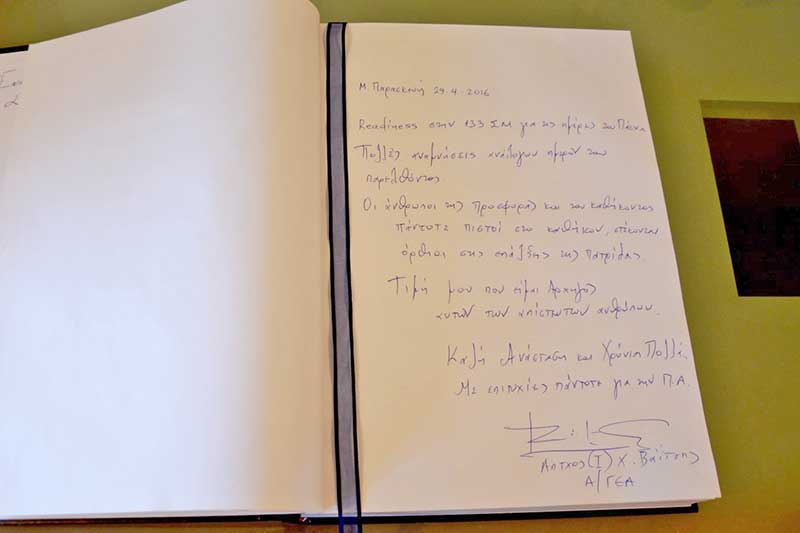 Σα
2
Μ. Παρασκευή 29.4.2016
Readiness στην 133 ΣΜ για τις ημέρες του Πάσχα
Πολλές αναμνήσεις ανάλογων ημερών του
παρελθόντος.
Οι άνθρωποι της προσφοράς και του καθήκοντος
πάντοτε πιστοί στο καθήκον, στέκονται
όρθιοι στις επάλξεις της πατρίδας.
Τιμή μου που είμαι Αρχηγός
αυτών των απίστευτων ανθρώπων.
Καλή Ανάσταση και Χρόνια Πολλά.
Με επιτυχίες πάντοτε για την Π.Α.
Απτχος (Ι) Χ. Βαΐτσης
Α/ΓΕΑ